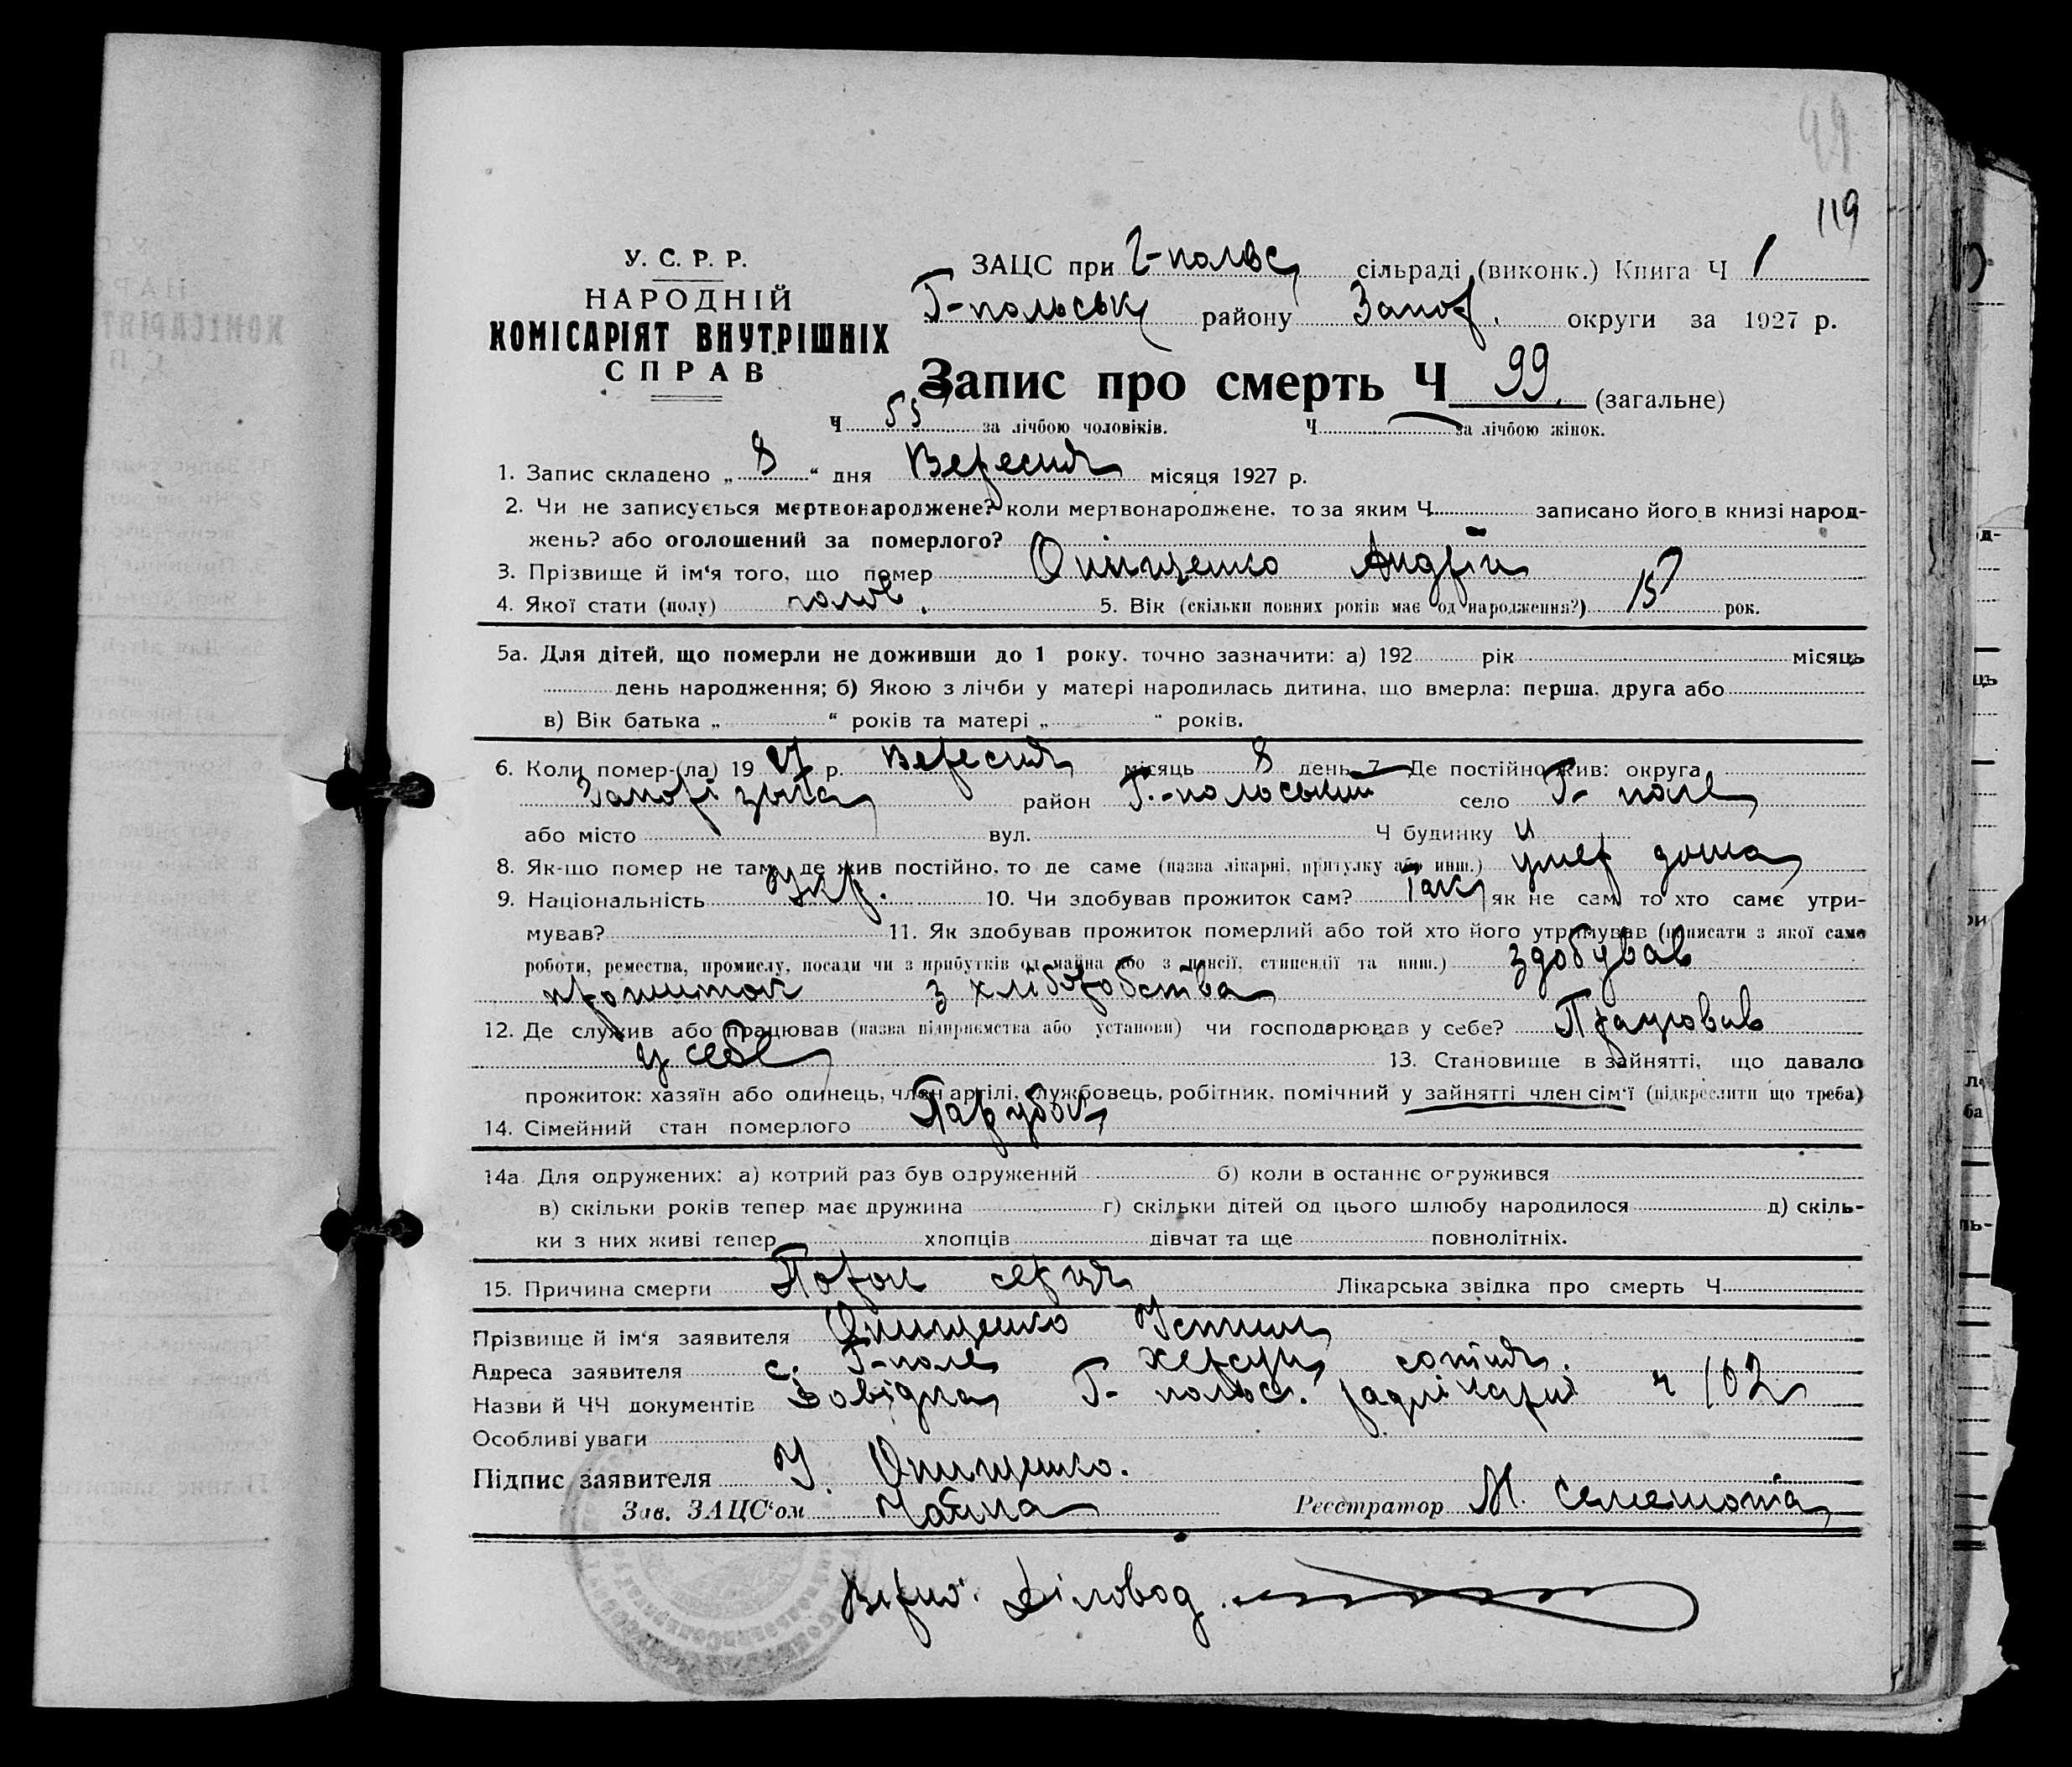 49
119
У. С. Р. Р.
НАРОДНІЙ
КОМІСАРІЯТ ВНУТРІШНІХ
СПРАВ
ЗАЦС при Г-польс сільраді (виконк.) Книга Ч 1
Г-польськ району Запор. округи за 1927 р.
Запис про смерть Ч 99. (загальне)
Ч 55 за лічбою чоловіків. Ч — за лічбою жінок.
1. Запис складено „ 8 “ дня Вересня місяця 1927 р.
2. Чи не записується мертвонароджене? коли мертвонароджене, то за яким Ч записано його в книзі народ-
жень? або оголошений за померлого? -
3. Прізвище й ім‘я того, що помер Онищенко Андрій
4. Якої стати (полу) чолов. 5. Вік (скільки повних років має од народження?) 15 рок.
5а. Для дітей, що померли не доживши до 1 року, точно зазначити: а) 192 рік місяць
день народження; б) Якою з лічби у матері народилась дитина, що вмерла: перша, друга або
в) Вік батька „ “ років та матері „ “ років.
6. Коли помер-(ла) 19 27 р. Вересня місяць 8 день 7. Де постійно жив: округа
Запорізька район Г.-польський село Г- поле
або місто вул. Ч будинку
8. Як-що помер не там, де жив постійно, то де саме (назва лікарні, притулку або инш.) умер дома
9. Національність Укр. 10. Чи здобував прожиток сам? Так як не сам, то хто саме утри-
мував? 11. Як здобував прожиток померлий або той хто його утримував (написати з якої саме
роботи, ремества, промислу, посади чи з прибутків од майна або з пенсії, стипендії та инш.) здобував
прожиток з хліборобства
12. Де служив або працював (назва підприємства або установи) чи господарював у себе? Працював
у себе 13. Становище в зайнятті, що давало
прожиток: хазяїн або одинець, член артілі, службовець, робітник, помічний у зайнятті член сім‘ї (підкреслити що треба)
14. Сімейний стан померлого Парубок
14а. Для одружених: а) котрий раз був одружений б) коли в останнє одружився
в) скільки років тепер має дружина г) скільки дітей од цього шлюбу народилося д) скіль-
ки з них живі тепер хлопців дівчат та ще повнолітніх.
15. Причина смерти Порок серця Лікарська звідка про смерть Ч
Прізвище й ім‘я заявителя Онищенко Устин
Адреса заявителя с. Г-поле Херсун сотня.
Назви й ЧЧ документів Довідка Г- польс. радлікаря ч 102
Особливі уваги
Підпис заявителя У. Онищенко.
Зав. ЗАЦС‘ом Реєстратор М.
Вірно: Діловод